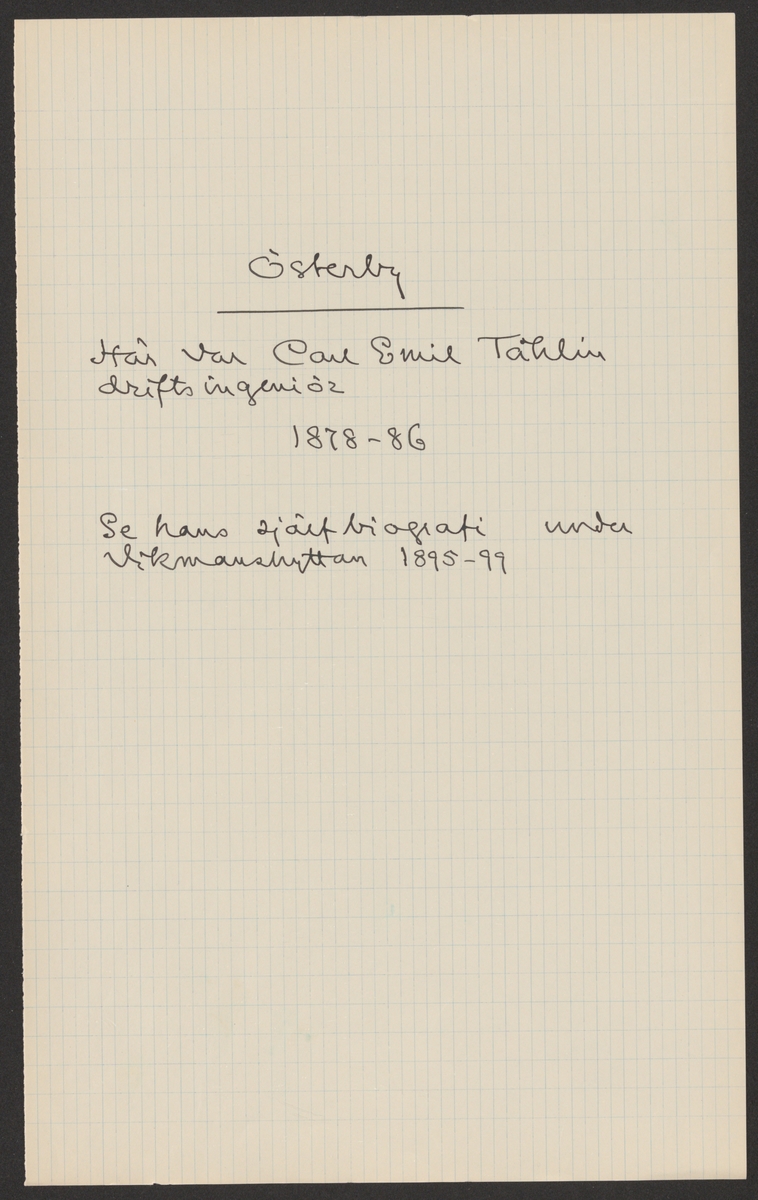 Österby
Här var Carl Emil Tåhlin
driftsingeniör
1878-86
Se hans själfbiografi under
Vikmanshyttan 1895-99